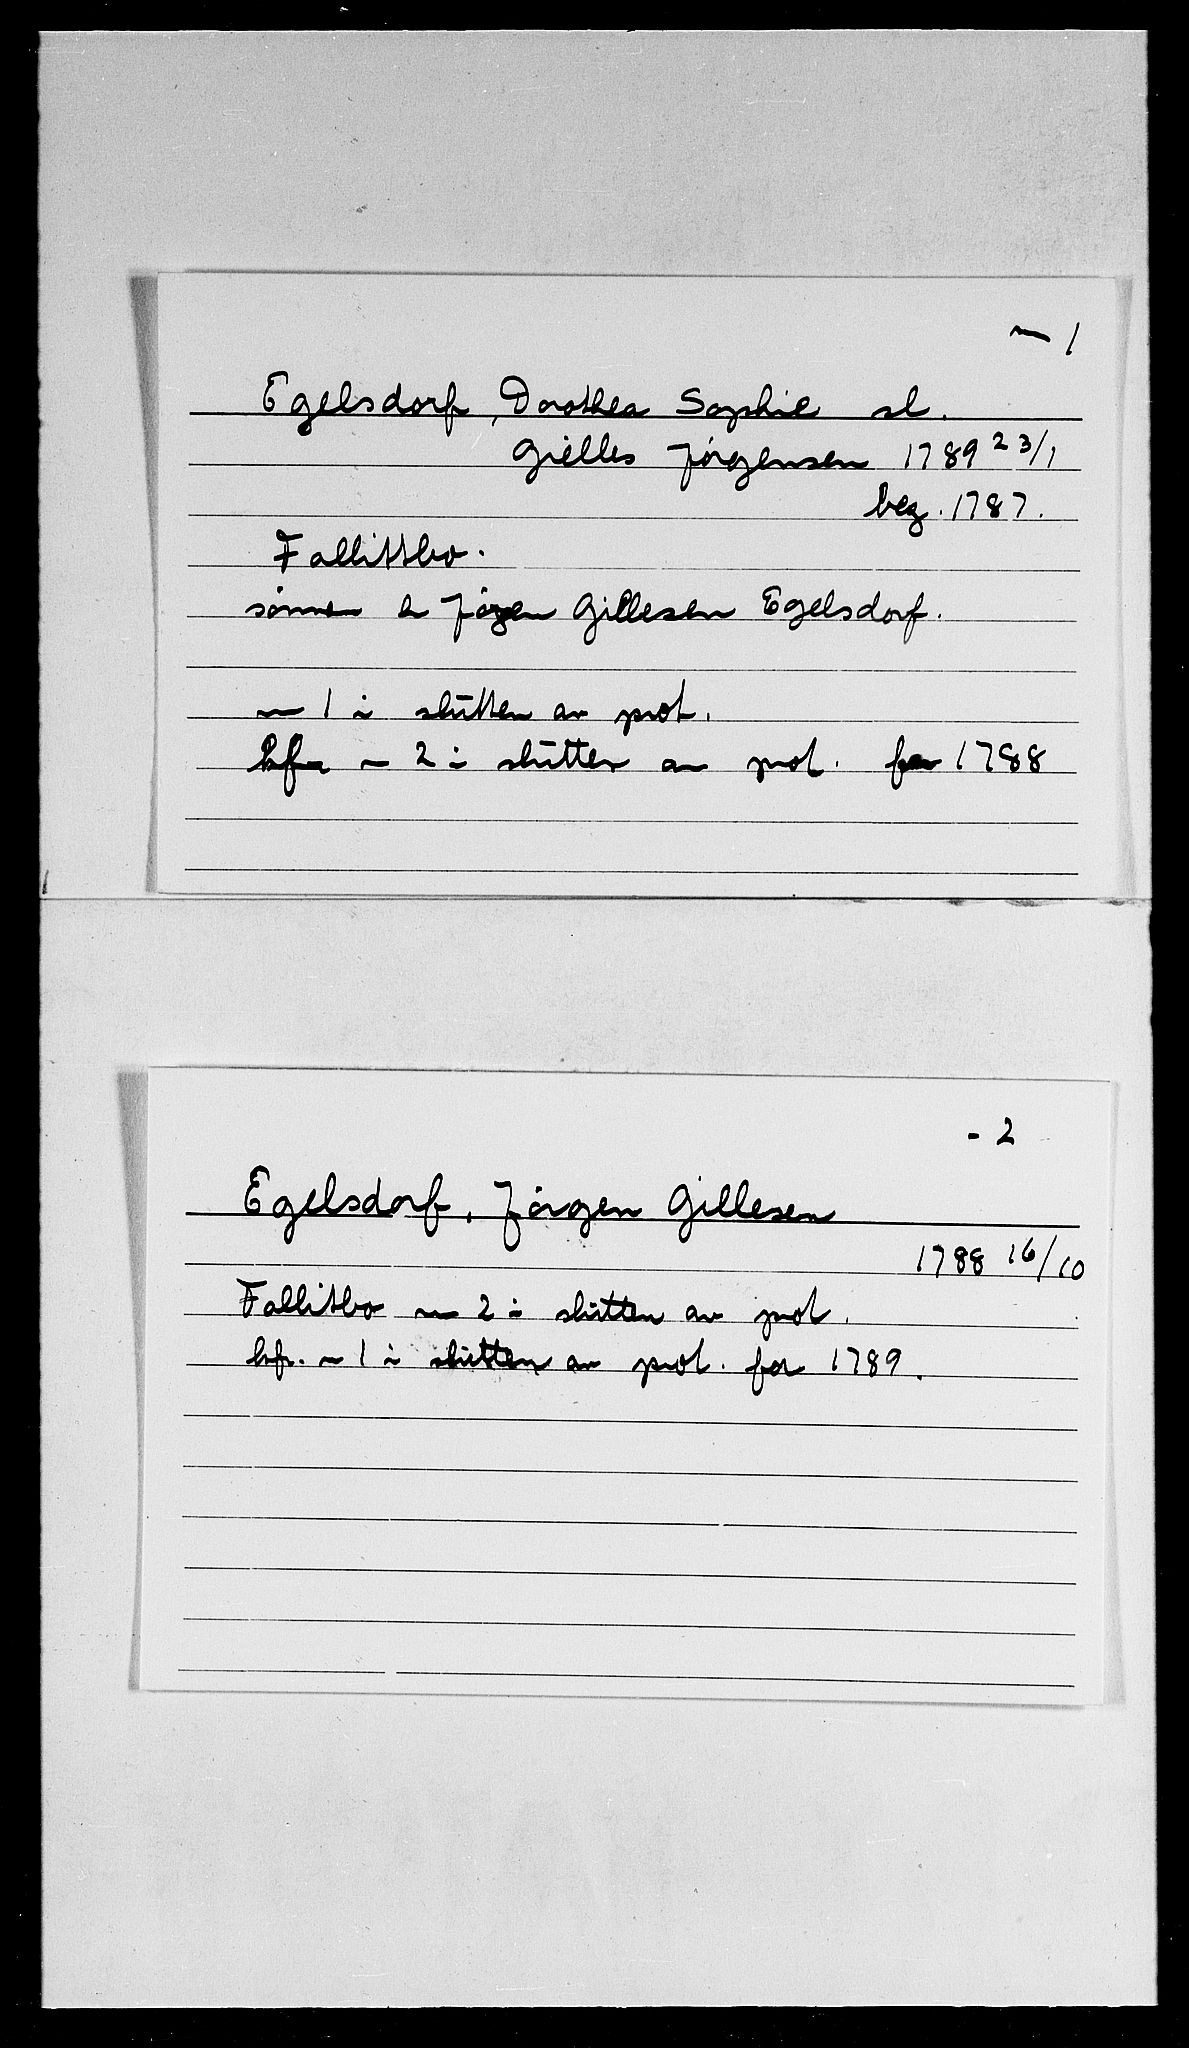 ~ 1
Egelsdorf, Dorothea Sophie sl.
Gielles Jörgensen 1789 23/1
beg. 1787.
Fallittbo.
sönnen er Jörgen Gillesen Egelsdorf.
~ 1 i slutten av prot.
kfr ~ 2 i slutten av prot. for 1788
- 2
Egelsdorf, Jörgen Gillesen
1788 16/10
Fallitbo ~ 2 i slutten av prot.
kfr. ~ 1 i slutten av prot. for 1789.